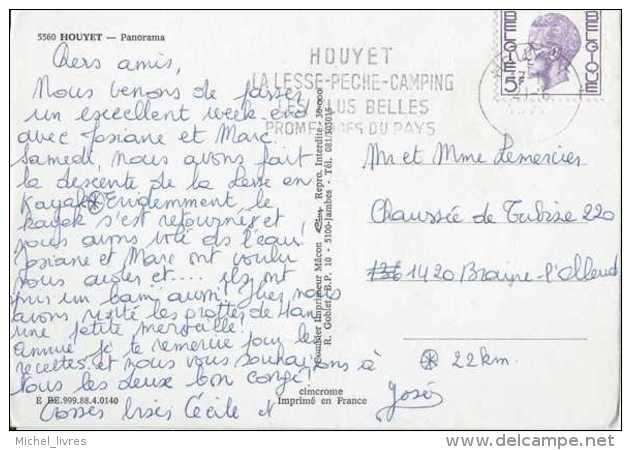 5560 HOUYET — Panorama
Chers amis,
Nous venons de passer
un excellent week-end
avec Josiane et Marc.
Samedi, nous avons fait
la descente de la Lesse en
kayak ⊛ Evidemment le
kayak s'est retourné et
nous avons volé ds l'eau!
Josiane et Marc ont voulu
nous aider et.... ils ont
pris un bain aussi! Hier nous
avons visité les grottes de Han
une petite merveille!
Annie je te remercie pour les
recettes et nous vous souhaitons à
tous les deux bon congé!
Grosses bises Cécile et
José
E BE.999.88.4.0140
HOUYET
LA LESSE-PECHE-CAMPING
LES PLUS BELLES
PROMENADES DU PAYS
BELGIE 5F BELGIQUE
Combier Imprimeur Mâcon Repro. Interdite
R. Goblet - B.P. 10 - 5100-Jambes - Tél. 081/303015
Mr et Mme Lemercier
Chaussée de Tubize 220
1420 Braine-l'Alleud
⊛ 22 km.
cimcrome
Imprimé en France
Michel_livres
delcampe.net